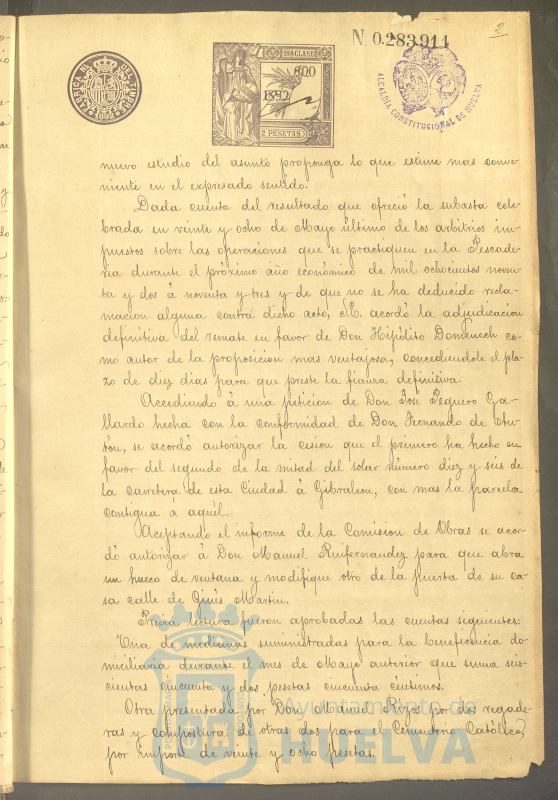 N. 0.283.911
2
FABRICA N. DEL TIMBRE
10A CLASE
1892
2 PESETAS
ALCALDIA CONSTITUCIONAL DE HUELVA
nuevo estudio del asunto proponga lo que estime mas conve-
niente en el expresado sentido.
Dada cuenta del resultado que ofreció la subasta cele-
brada en veinte y ocho de Mayo último de los arbitrios im-
puestos sobre las operaciones que se practiquen en la Pescade-
ria durante el próximo año económico de mil ochocientos noven-
ta y dos á noventa y tres y de que no se ha deducido recla-
macion alguna contra dicho acto, S.E. acordó la adjudicacion
definitiva del remate en favor de Don Hipólito Domenech co-
mo autor de la proposicion mas ventajosa, concediendole el pla-
zo de diez dias para que preste la fianza definitiva.
Accediendo á una peticion de Don José Peguero Ga-
llardo hecha con la conformidad de Don Fernando de
se acordó autorizar la cesion que el primero ha hecho en
favor del segundo de la mitad del solar número diez y seis de
la carretera de esta Ciudad á Gibraleon, con mas la parcela
contigua á aquél.
Aceptando el informe de la Comision de Obras se acor-
dó autorizar á Don Manuel Ruifernandez para que abra
un hueco de ventana y modifique otro de la puerta de su ca-
sa calle de Ginés Martin.
Previa lectura fueron aprobadas las cuentas siguientes:
Una de medicinas suministradas para la beneficencia do-
miciliaria durante el mes de Mayo anterior que suma seis-
cientas cincuenta y dos pesetas cincuenta céntimos.
Otra presentada por Don Manuel Rojas por dos regade-
ras y compostura de otras dos para el Cementerio Católico,
por importe de veinte y ocho pesetas.
Ayuntamiento de
HUELVA